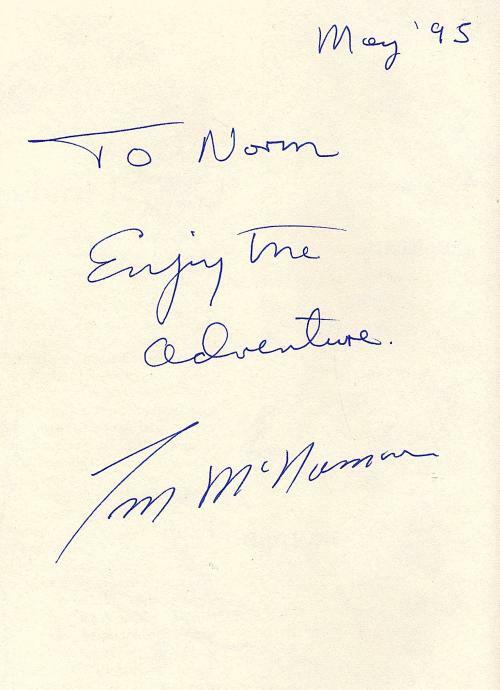 May '95
To Norm
Enjoy the
adventure.
Tom McNamara